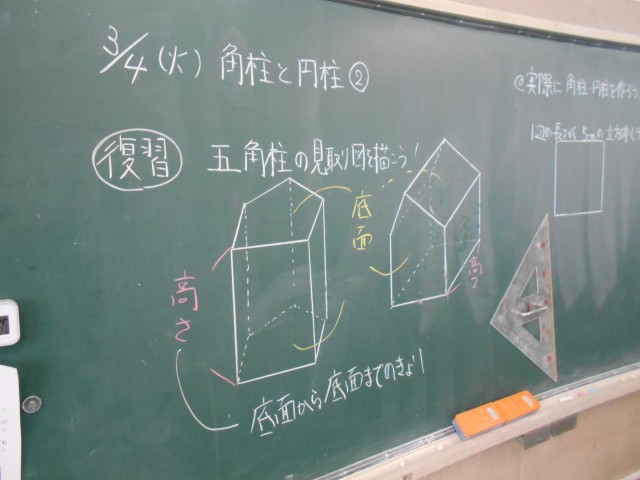 3/4(火)角柱と円柱②
復習
五角柱の見取り図を描こう!
底面
高さ
高さ
底面から底面までのきょり
@実際に角柱・円柱を作ろう
1辺の長さが5cmの立方体